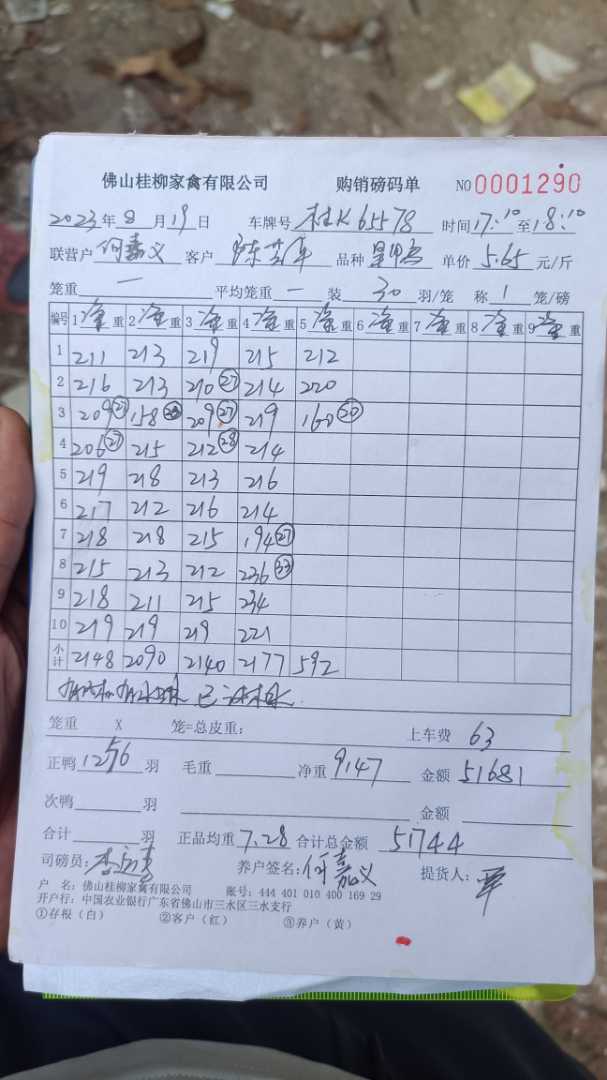 佛山桂柳家禽有限公司 购销磅码单 NO 0001290
2023年8月19日 车牌号 桂K65578 时间17:10至18:10
联营户 何嘉义 客户 品种 单价 5.65 元/斤
笼重 一 平均笼重 一 装 30 羽/笼 称 1 笼/磅
编号 1净重 2净重 3净重 4净重 5净重 6净重 7净重 8净重 9净重
1 211 213 219 215 212
2 216 213 210(27) 214 220
3 209(27) 158(20) 209(27) 219 160(20)
4 206(27) 215 212(28) 214
5 219 218 213 216
6 217 212 216 214
7 218 218 215 194(27)
8 215 213 212 236(33)
9 218 211 215 234
10 219 219 219 221
小计 2148 2090 2140 2177 592
笼重 X 笼=总皮重: 上车费 63
正鸭 1256 羽 毛重 净重 9147 金额 51681
次鸭 羽 金额
合计 羽 正品均重 7.28 合计总金额 51744
司磅员: 养户签名: 何嘉义 提货人:
户 名: 佛山桂柳家禽有限公司 账号: 444 401 010 400 169 29
开户行: 中国农业银行广东省佛山市三水区三水支行
①存根(白) ②客户(红) ③养户(黄)